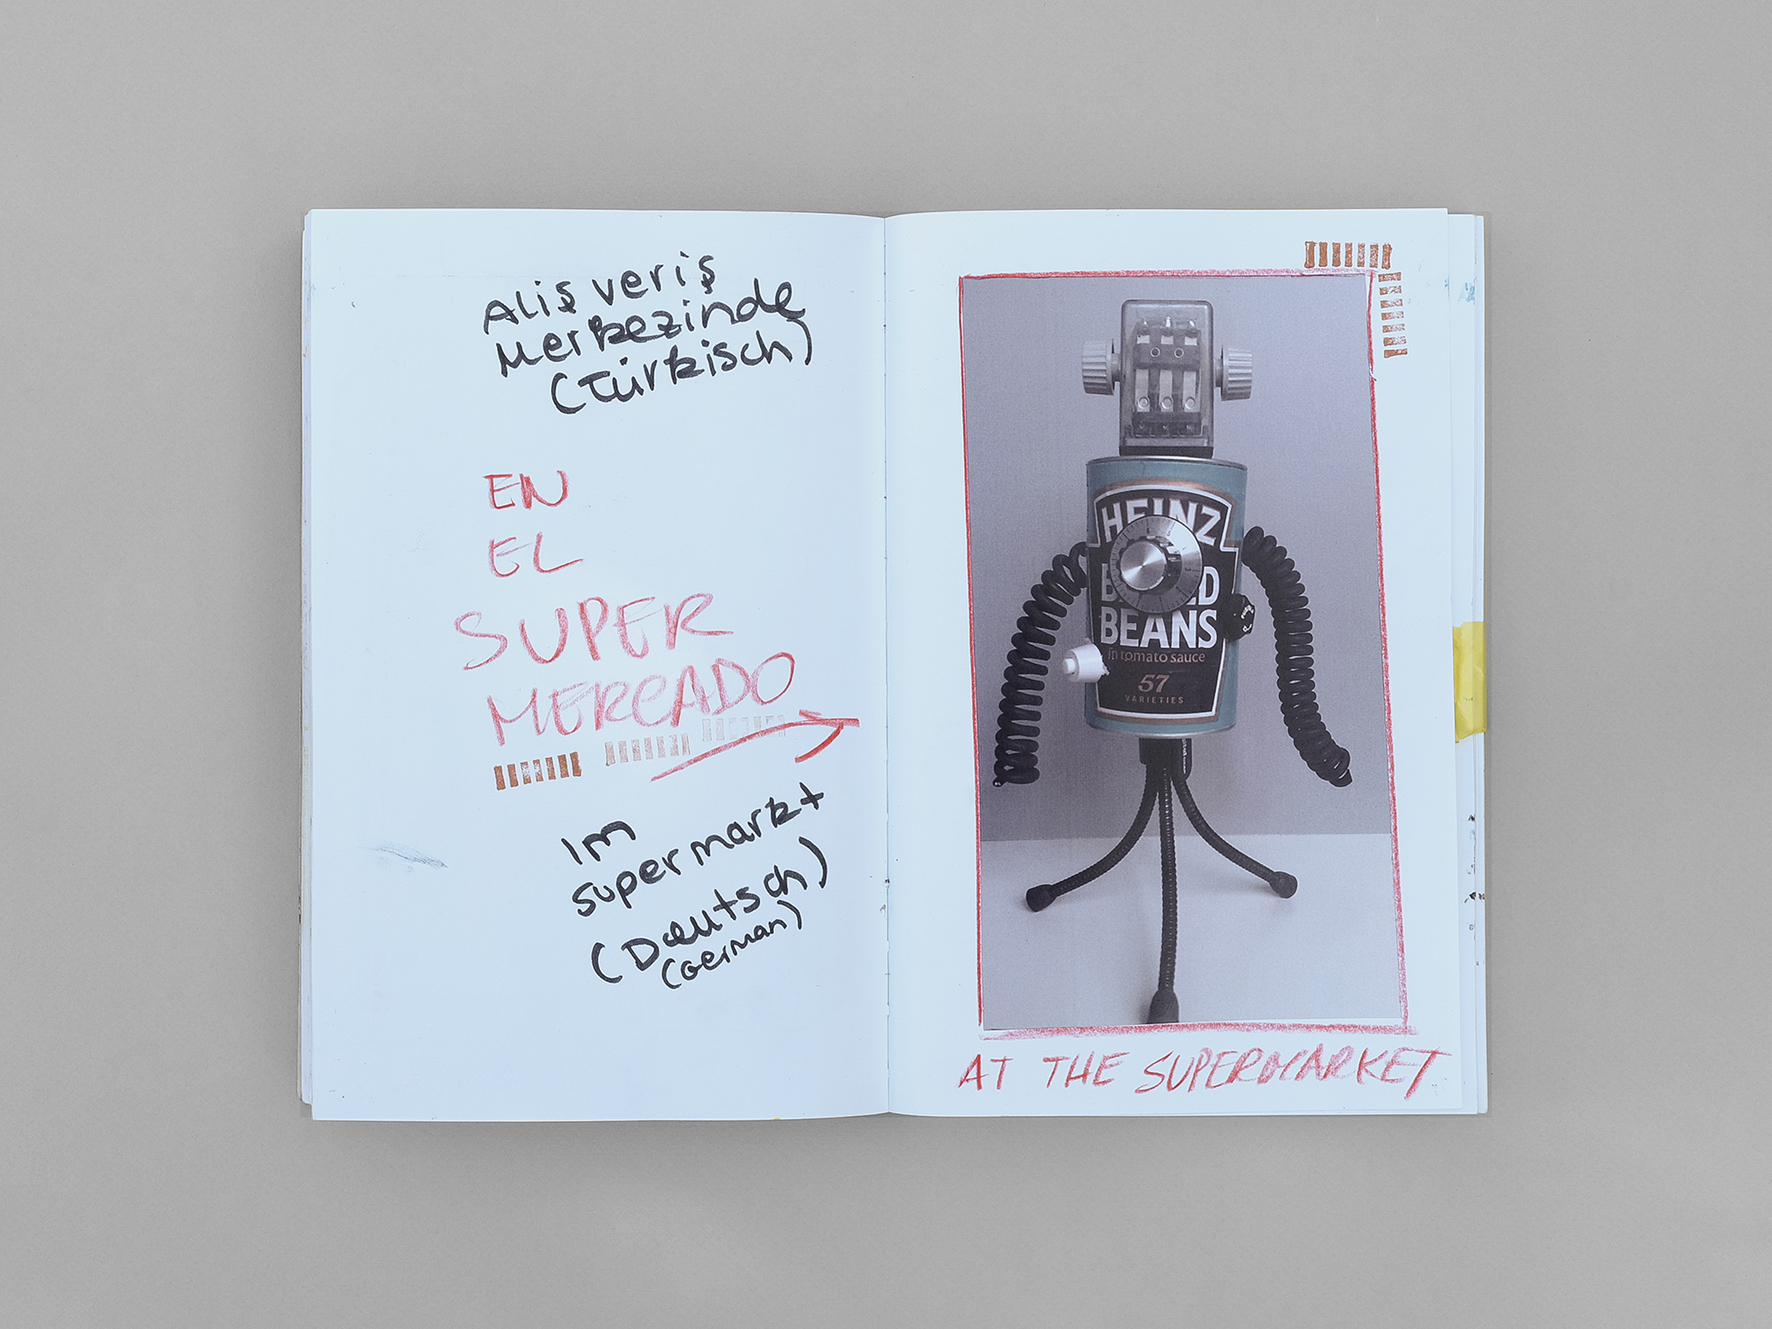 Aliş veriş
Merkezinde
(Türkisch)
EN
EL
SUPER
MERCADO
im
supermarkt
(Deutsch)
(German)
HEINZ
BEANS
in tomato sauce
57
VARIETIES
AT THE SUPERMARKET